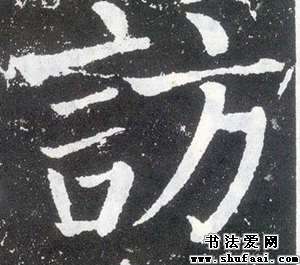 訪
书法爱网
www.shufaai.com